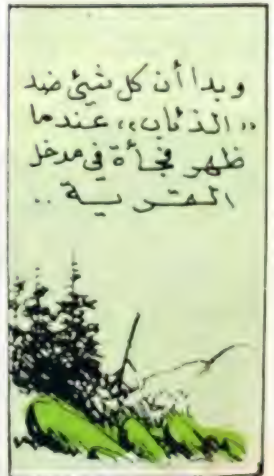 وبدا أن كل شيئ ضد
"الذئاب"، عندما
ظهر فجأة في مدخل
القرية ..